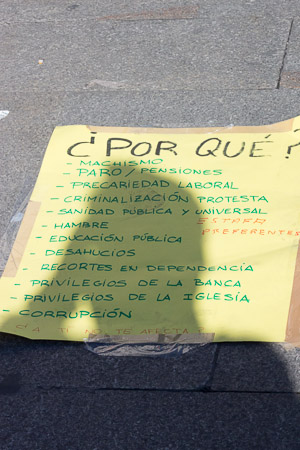 ¿POR QUÉ?
- MACHISMO
- PARO/PENSIONES
- PRECARIEDAD LABORAL
- CRIMINALIZACIÓN PROTESTA
- SANIDAD PÚBLICA Y UNIVERSAL
- HAMBRE
PREFERENTES
- EDUCACIÓN PÚBLICA
- DESAHUCIOS
- RECORTES EN DEPENDENCIA
- PRIVILEGIOS DE LA BANCA
- PRIVILEGIOS DE LA IGLESIA
- CORRUPCIÓN
A TI NO TE AFECTA?